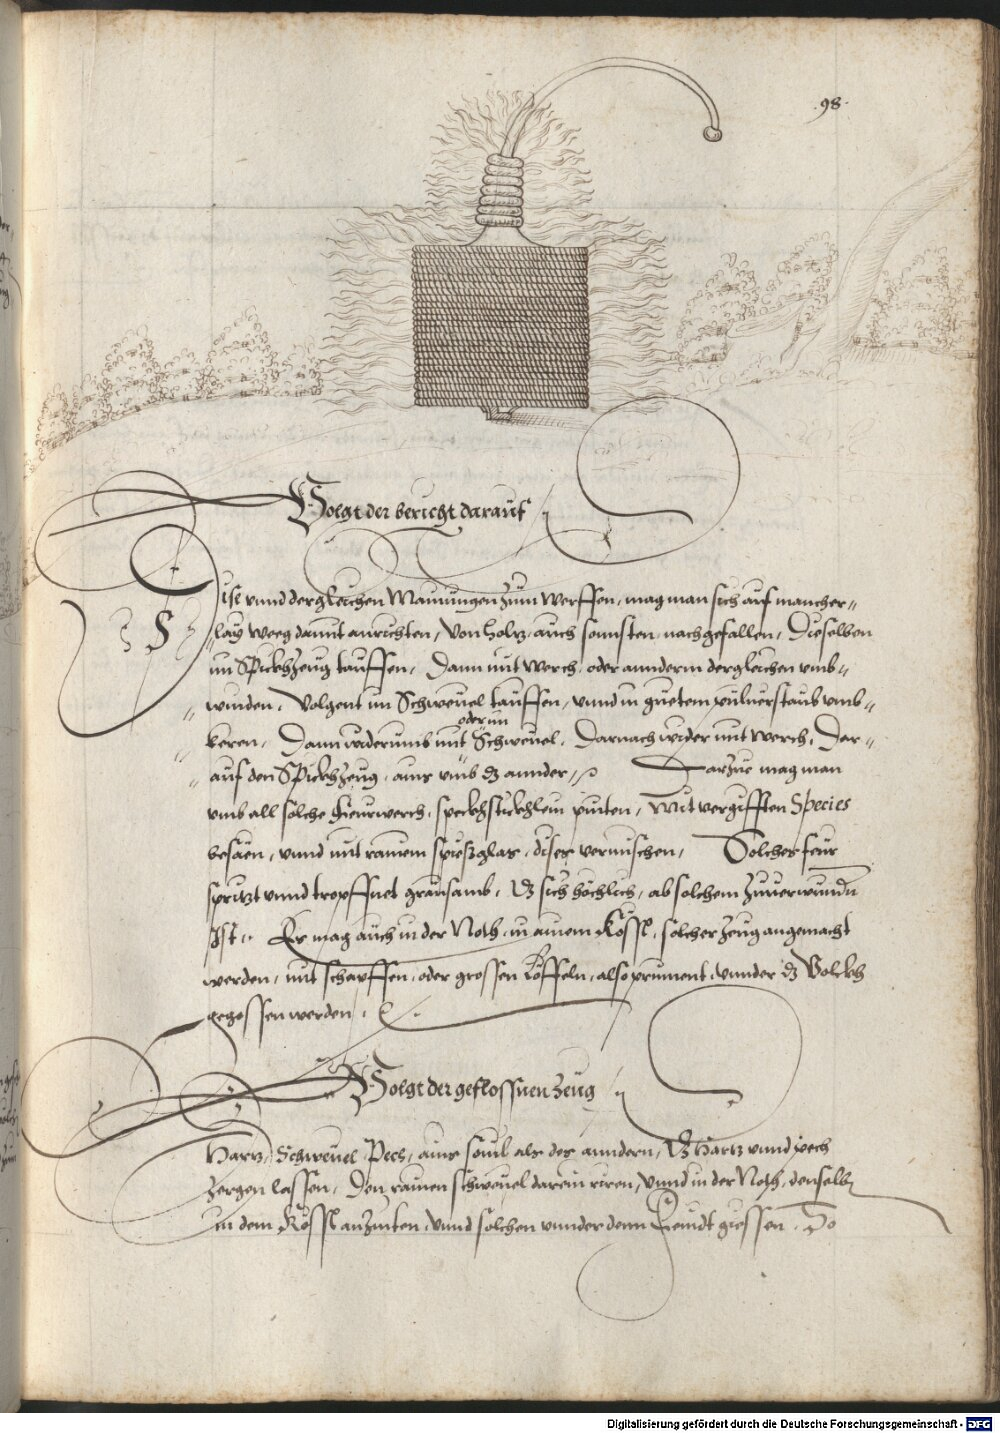 .98.
Volgt der bericht darauf
Dise vnnd dergleichen Mainungen zum werffen, mag man sich auf mancher=
lay weeg damit anrichten, Von holtz, auch sonnsten, nachgefallen, Dieselben
im Spickhzeug tauffen, Dann mit werch, oder anndern dergleichen vmb=
winden, Volgent im Schweuel tauffen, vnnd in guetem puluerstaub vmb=
keren, Dann widerumb mit oder im Schweuel, Darnach wider mit werch, Dar=
auf den Spickhzeug, ains vmb dz annder, Darzue mag man
vmb all solche feurwerch, speckhstickhlein pinten, Mit vergifften Species
besäen, vnnd mit rainem spiesglas, dises vermischen, Solches feur
spritzt vnnd tropffnet grausamb, dz sich höchlich, ab solchem zuuerwundn
Ist. Er mag auch in der Noth, in ainem Kössl, solcher zeug angemacht
werden, mit scharffen, oder grossen Löffeln, also prinnent, vnnder dz Volckh
gegossen werden,
Volgt der geflossnen zeug
Hartz, Schweuel, Pech, ains souil als des anndern, dz Hartz vnnd pech
zergen lassen, Den rainen schweuel darein rüren, vnnd in der Noth, denselben
in dem Kössl anzinten, vnnd solchen vnnder denn Feindt giessen, So
Digitalisierung gefördert durch die Deutsche Forschungsgemeinschaft - DFG